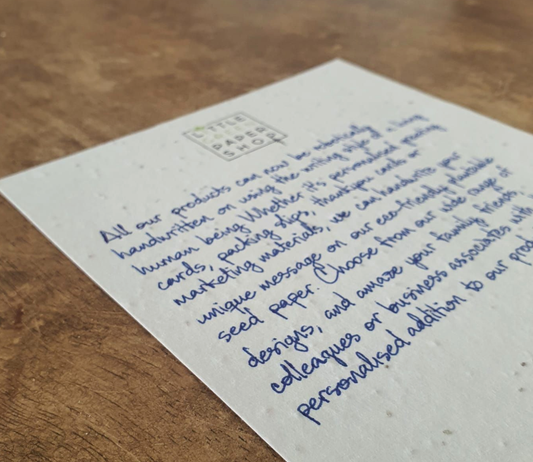 LITTLE
PAPER
SHOP
All our products can now be robotically
handwritten on using the writing style of a living
human being. Whether it's personalised greeting
cards, packing slips, thankyou cards or
marketing materials, we can handwrite your
unique message on our eco-friendly plantable
seed paper. Choose from our wide range of
designs, and amaze your family, friends,
colleagues or business associates with
personalised addition to our